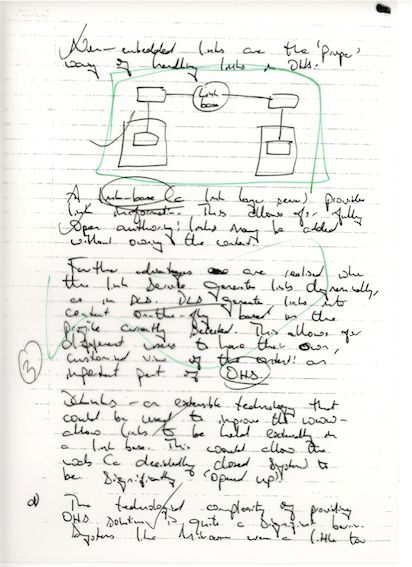 Non-embedded links are the 'proper'
way of handling links in OHS.
Link
base
A link-base (a link base server) provides
link information. This allows for fully
open authoring: links may be added
without owning the content.
Further advantages are realised when
the link service generates links dynamically,
as in DLS. DLS generate links into
content on-the-fly based on the
profile currently selected. This allows for
different users to have their own,
customised view of the content: an
important part of OHS
3
- an extensible technology that
could be used to improve the WWW-
allow links to be held externally in
a link base. This would allow the
web (a decidedly closed system) to
be significantly 'opened up'!
d) The technological complexity of providing
OHS solution is quite a significant
Systems like Microcosm were a little too